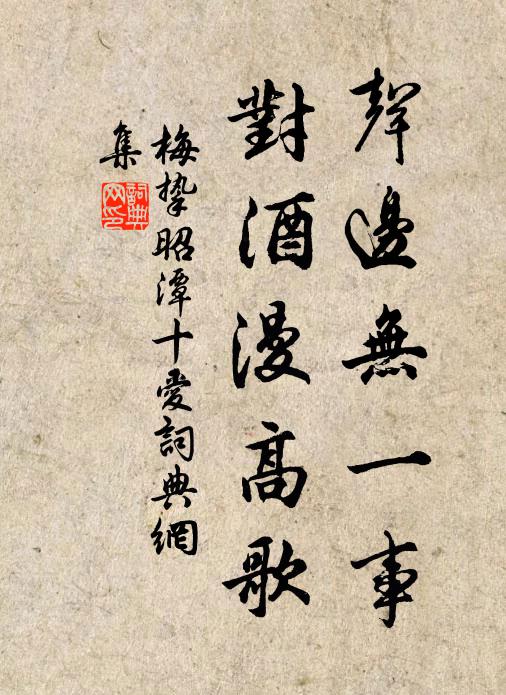 聲邊無一事
對酒漫高歌
梅摯昭潭十愛詞典網
集
詞典網印